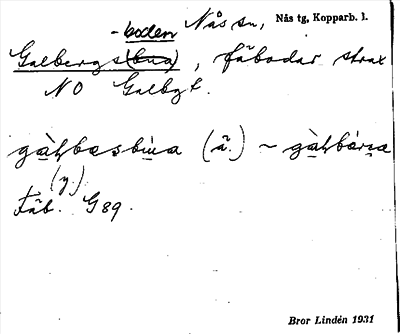 -boden Nås sn, Nås tg, Kopparb. l.
Galbergs(bua), fäbodar strax
NO Galbgt.
gàłbæsbùa (ä.) ~ gàłbárṣa
(y.)
Fäb. G89.
Bror Lindén 1931